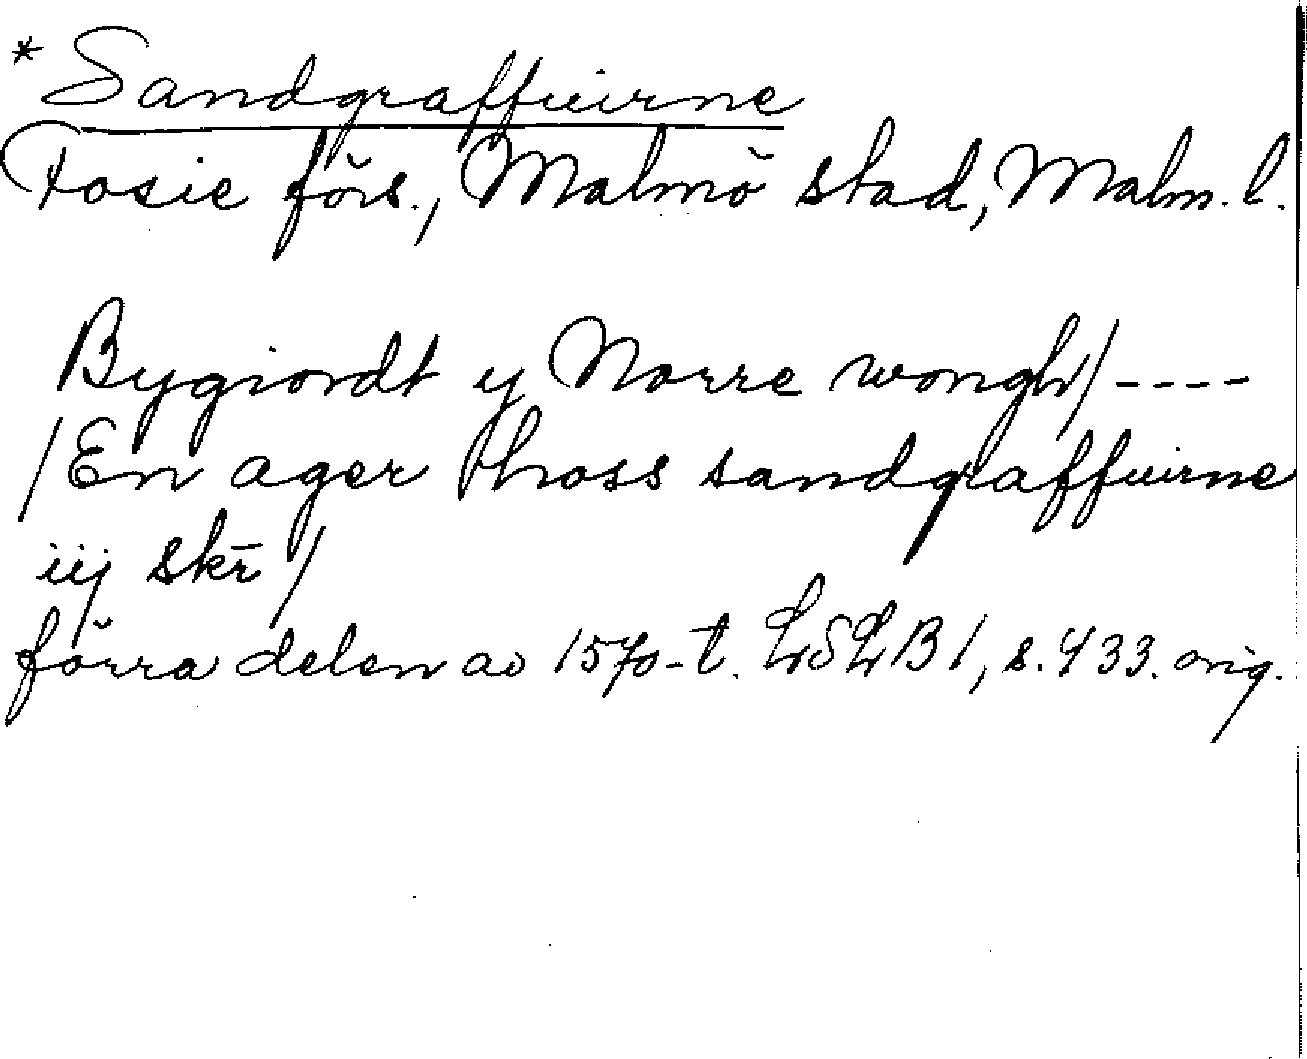 * Sandgraffuirne
Fosie förs., Malmö stad, Malm. l.
Bygiordt y Norre wongh/ ----
/En ager hoss sandgraffuirne
iij skr̄ /
förra delen av 1570-t. LSLB 1, s. 433. orig.